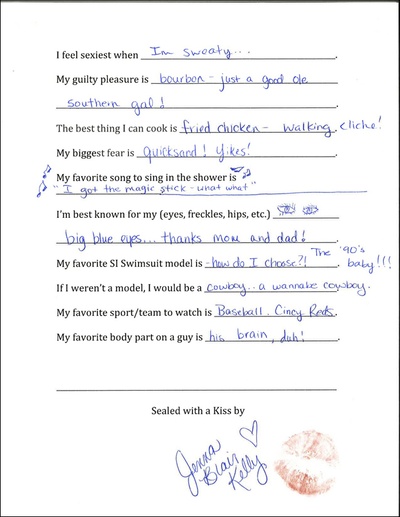 I feel sexiest when I'm sweaty...
My guilty pleasure is bourbon - just a good ole
southern gal!
The best thing I can cook is fried chicken - walking cliche!
My biggest fear is quicksand! Yikes!
My favorite song to sing in the shower is
"I got the magic stick - what what"
I'm best known for my (eyes, freckles, hips, etc.)
big blue eyes... thanks mom and dad!
My favorite SI Swimsuit model is - how do I choose?! The '90's baby!!!
If I weren't a model, I would be a cowboy.. a wannabe cowboy.
My favorite sport/team to watch is Baseball. Cincy Reds.
My favorite body part on a guy is his brain, duh!
Sealed with a Kiss by
Jenna
Blair
Kelly